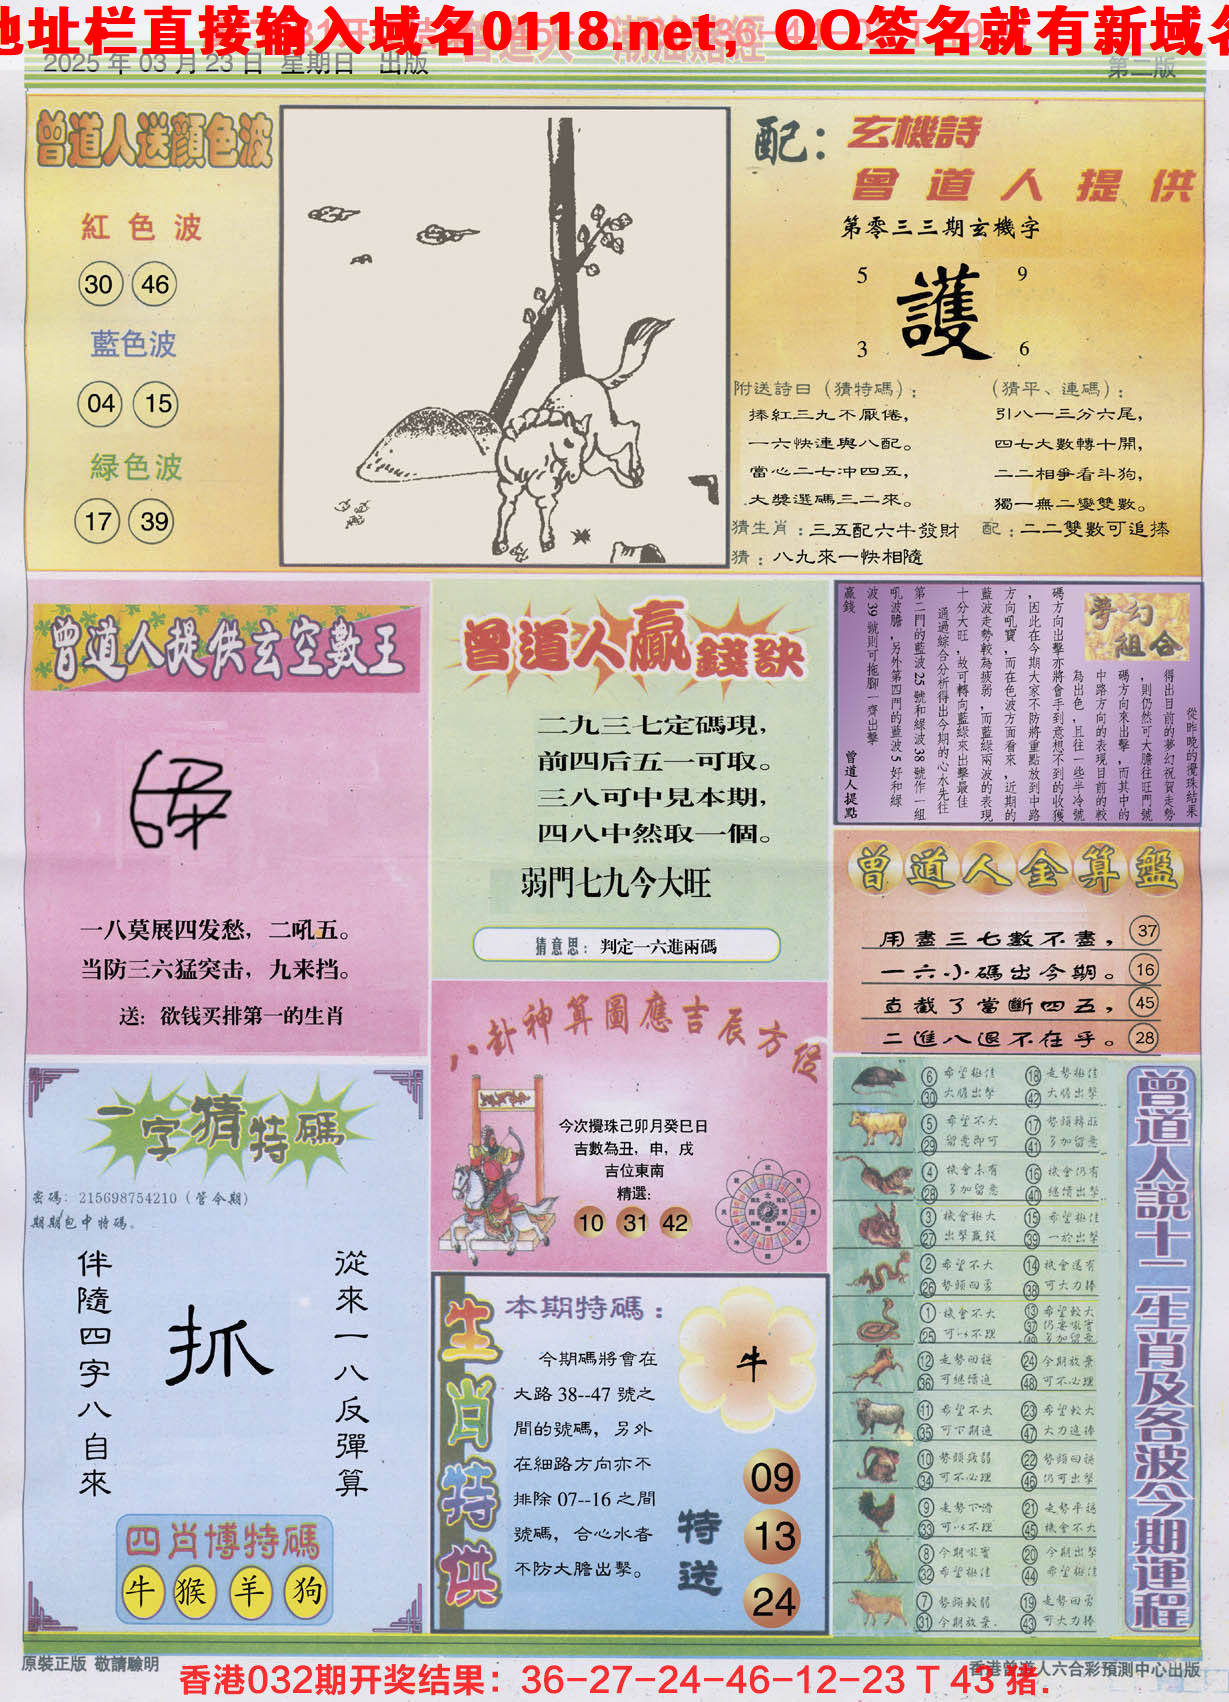 地址栏直接输入域名0118.net，QQ签名就有新域名
2025 年 03 月 23 日 星期日 出版
第二版
曾道人送顏色波
紅色波
30 46
藍色波
04 15
緑色波
17 39
配：玄機詩
曾道人提供
第零三三期玄機字
5 9
護
3 6
附送詩曰（猜特碼）：
捧紅三九不厭倦，
一六快連與八配。
當心二七冲四五，
大獎選碼三二來。
（猜平、連碼）：
引八一三分六尾，
四七大數轉十開，
二二相爭看斗狗，
獨一無二變雙數。
猜生肖：三五配六牛發財
配：二二雙數可追捧
猜：八九來一快相隨
曾道人提供玄空數王
一八莫展四发愁，二吼五。
当防三六猛突击，九来挡。
送：欲钱买排第一的生肖
曾道人贏錢訣
二九三七定碼現，
前四后五一可取。
三八可中見本期，
四八中然取一個。
弱門七九今大旺
猜意思：判定一六進兩碼
夢幻組合
從昨晚的攪珠結果
得出目前的夢幻祝賀走勢
，則仍然可大膽往旺門號
碼方向來出擊，而其中的
中路方向的表現目前的較
為出色，且往一些半冷號
碼方向出擊亦將會手到意想不到的收獲
，因此在今期大家不防將重點放到中路
方向吼寶，而在色波方面看來，近期的
藍波走勢較為疲弱，而藍綠兩波的表現
十分大旺，故可轉向藍綠來出擊最佳
通過綜合分析得出今期的心水先往
第二門的藍波25號和綠波38號作一組
吼波膽，另外第四門的藍波5好和綠
波39號則可拖腳一齊出擊
贏錢
曾道人提點
曾道人金算盤
用盡三七數不盡， 37
一六小碼出今期。 16
直截了當斷四五， 45
二進八退不在乎。 28
八卦神算圖應吉辰方位
今次攪珠己卯月癸巳日
吉數為丑，申，戌
吉位東南
精選：
10 31 42
一字猜特碼
密碼：215698754210（管今期）
期期包中特碼。
從來一八反彈算
抓
伴隨四字八自來
四肖博特碼
牛 猴 羊 狗
生肖特供
本期特碼：
今期碼將會在
大路38--47號之
間的號碼，另外
在細路方向亦不
排除07--16之間
號碼，合心水者
不防大膽出擊。
牛
特送
09
13
24
曾道人說十二生肖及各波今期運程
6 希望極佳 18 走勢極佳
30 大膽出擊 42 大膽出擊
5 希望不大 17 勢頭轉旺
29 留意即可 41 多加留意
4 機會未有 16 機會仍有
28 多加留意 40 繼續出擊
3 機會極大 15 希望極佳
27 出擊贏錢 39 一於出擊
2 希望不大 14 機會還有
26 勢頭回勇 38 可大力捧
1 機會不大 13 希望較大
25 可以不理 37
12 走勢回穩 24 今期放棄
36 可繼續追 48 可不必理
11 希望不大 23 希望較大
35 可下期追 47 大力追捧
10 勢頭疲弱 22 勢頭回穩
34 可不必理 46 仍可出擊
9 走勢下滑 21 走勢平穩
33 可以不理 45 機會不大
8 今期吼實 20 今期出擊
32 希望極佳 44 希望極佳
7 勢頭較弱 19 走勢回勇
31 今期放棄. 43 可大力捧
原裝正版 敬請驗明
香港曾道人六合彩預測中心出版
香港032期开奖结果：36-27-24-46-12-23 T 43 猪.